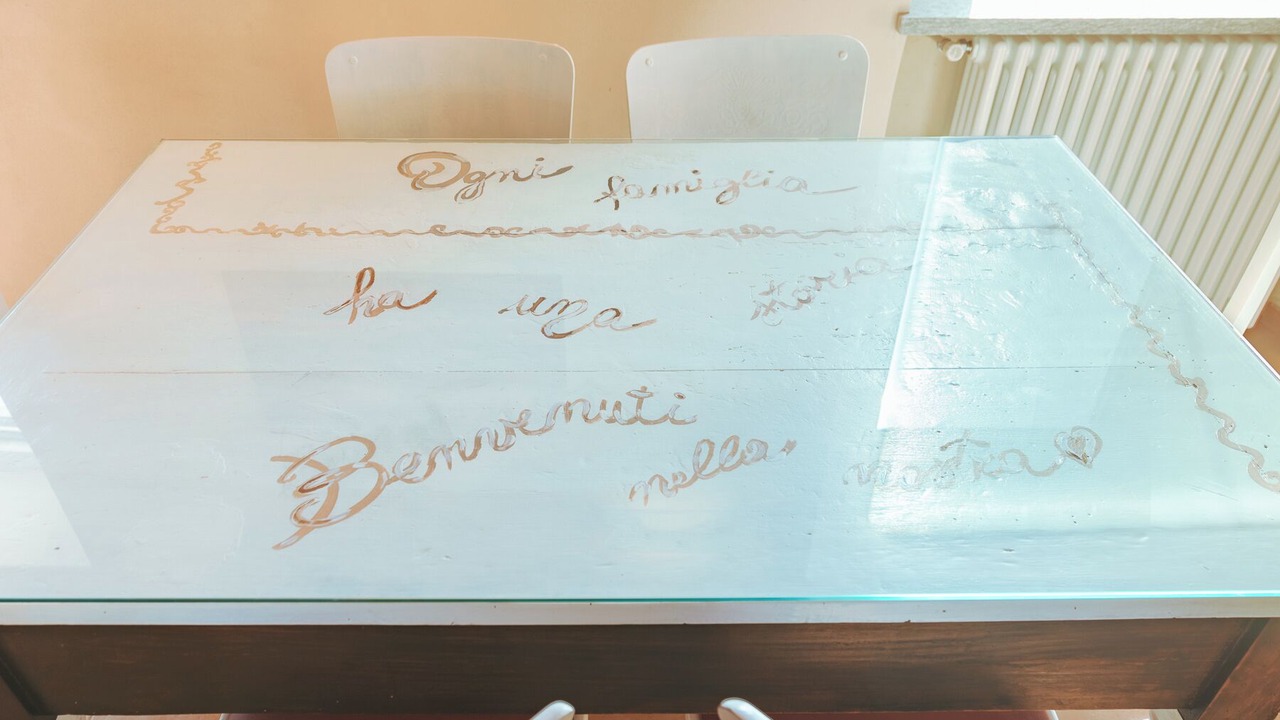 Ogni famiglia
ha una storia
Benvenuti
nella nostra